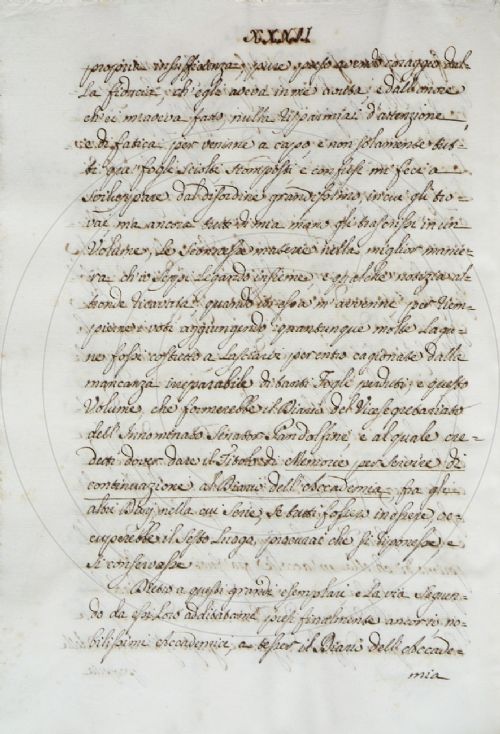 XXXII
propria insufficienza, pure preso avendo coraggio dal-
la fiducia, ch'egli aveva in me avuta, e dall'onore
ch'ei mi aveva fatto, nulla risparmiai d'attenzione,
e di fatica per venirne a capo, e non solamente tut-
ti que' fogli sciolti scomposti e confusi mi feci a
sviluppare dal disordine grandissimo, in cui gli tro-
vai ma ancora tutti di mia mano gli trascrissi in un
Volume, le materie nella miglior manie-
ra ch'io seppi legando insieme e qualche notizia al-
tronde ricavata quando ciò m'avvenne per riem-
piere i voti aggiungendo quantunque molte Lagu-
ne fossi costretto a lasciarvi per entro cagionate dalla
mancanza irreparabile di tanti Fogli perduti; e questo
Volume, che formerebbe il Diario del Vicesegretariato
dell'Innominato Senator Pandolfini, e al quale cre-
detti dover dare il Titolo di Memorie per servire di
continuazione al Diario dell'Accademia, fra gli
altri Diarj nella cui Serie, se tutti fossero in essere, oc-
cuperebbe il Sesto Luogo, procurai che si riponesse e
si conservasse.
Dietro a questi grandi esemplari e la via seguen-
do da essi loro additatami presi finalmente ancor io no-
bilissimi Accademici, a tesser il Diario dell'Accade-
mia